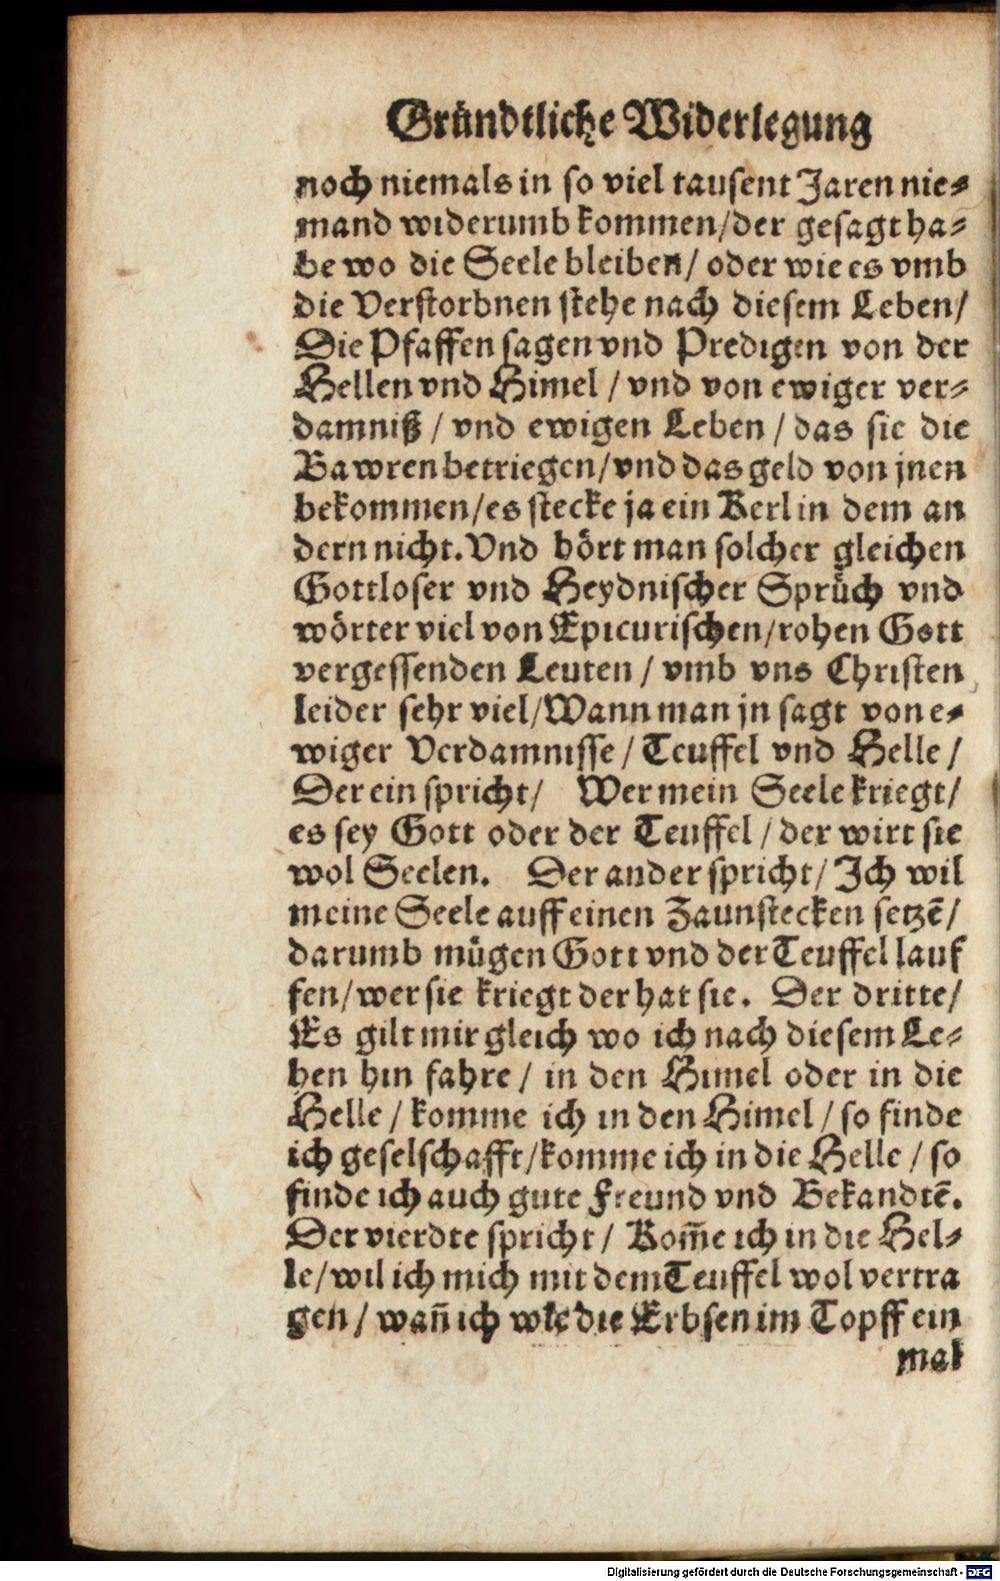 Gründtliche Widerlegung
noch niemals in so viel tausent Jaren nie-
mand widerumb kommen/der gesagt ha-
be wo die Seele bleiben/ oder wie es vmb
die Verstorbnen stehe nach diesem Leben/
Die Pfaffen sagen vnd Predigen von der
Hellen vnd Himel / vnd von ewiger ver-
damniß / vnd ewigen Leben / das sie die
Bawren betriegen/vnd das geld von jnen
bekommen/es stecke ja ein Kerl in dem an
dern nicht. Vnd hört man solcher gleichen
Gottloser vnd Heydnischer Sprüch vnd
wörter viel von Epicurischen/rohen Gott
vergessenden Leuten / vmb vns Christen
leider sehr viel/Wann man jn sagt von e-
wiger Verdamnisse / Teuffel vnd Helle /
Der ein spricht/ Wer mein Seele kriegt/
es sey Gott oder der Teuffel / der wirt sie
wol Seelen. Der ander spricht/ Ich wil
meine Seele auff einen Zaunstecken setzē/
darumb mügen Gott vnd der Teuffel lauf
fen/wer sie kriegt der hat sie. Der dritte/
Es gilt mir gleich wo ich nach diesem Le-
ben hin fahre / in den Himel oder in die
Helle / komme ich in den Himel / so finde
ich geselschafft/komme ich in die Helle / so
finde ich auch gute Freund vnd Bekandtē.
Der vierdte spricht/ Kom̄e ich in die Hel-
le/wil ich mich mit dem Teuffel wol vertra
gen / wañ ich wie die Erbsen im Topff ein
mal
Digitalisierung gefördert durch die Deutsche Forschungsgemeinschaft - DFG